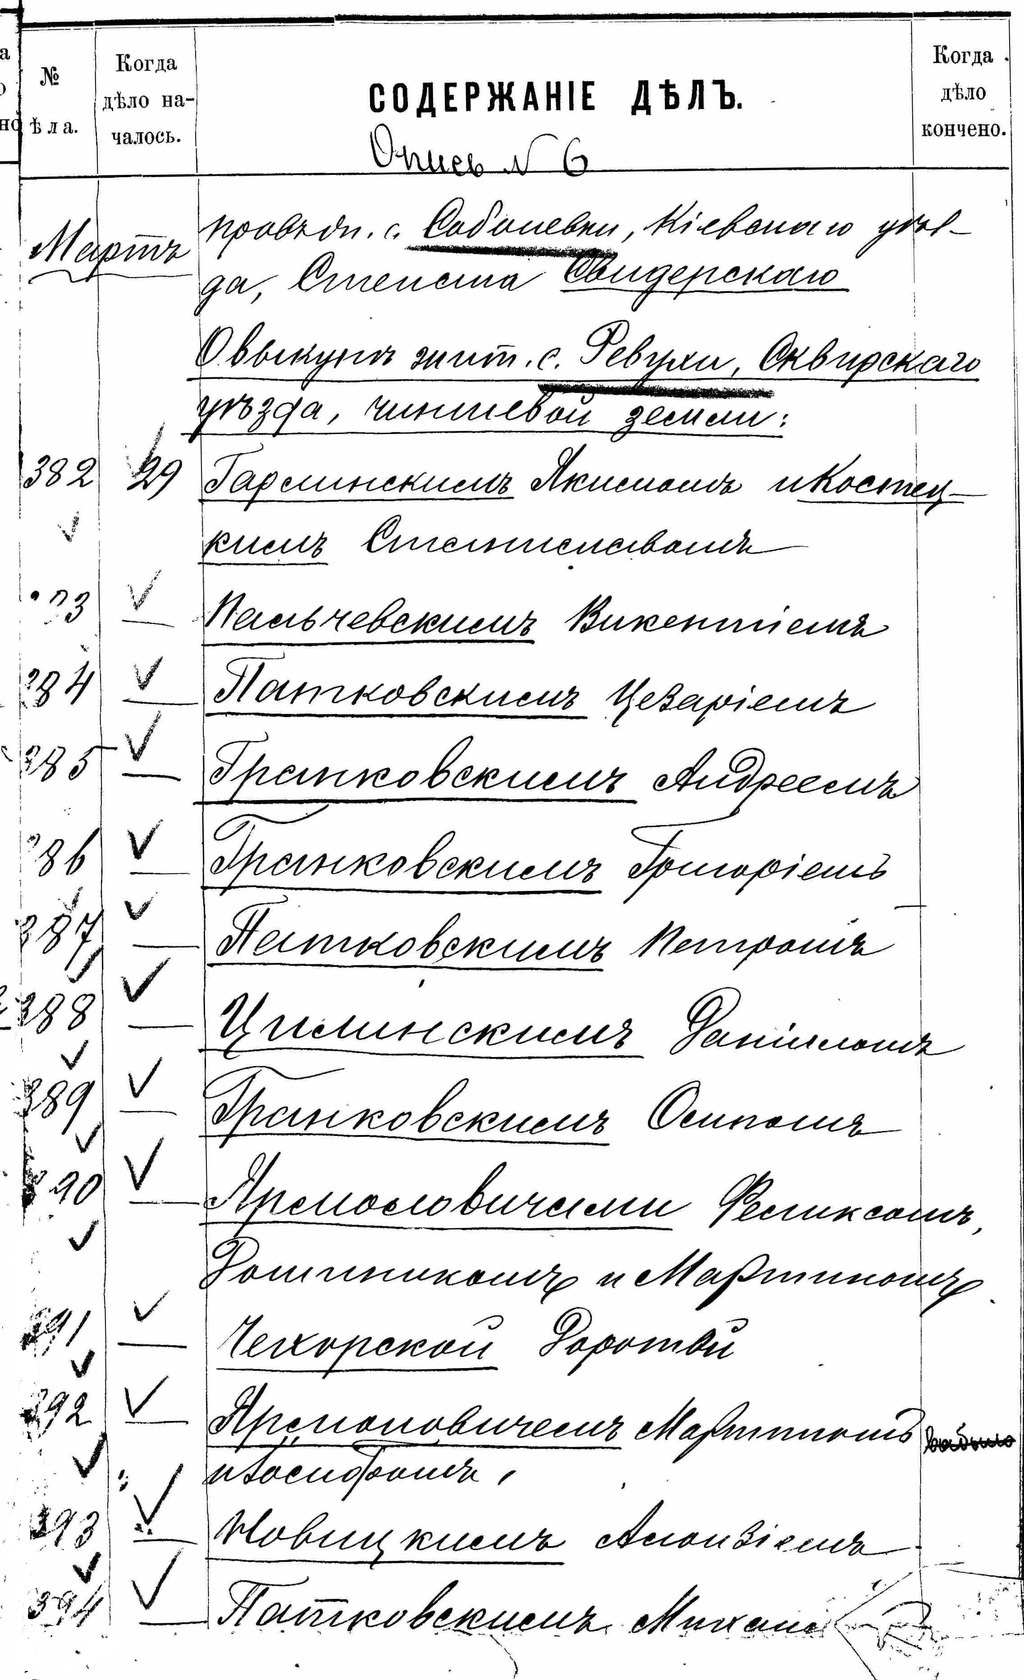 №
ѣла.
Когда
дѣло на-
чалось.
СОДЕРЖАНІЕ ДѢЛЪ.
Опись N 6
Когда
дѣло
кончено.
Мартъ
с. Соболевки, Кіевскаго уѣз-
да, Степана Свидерскаго
О выкупѣ жит. с. Ревухи, Сквирскаго
уѣзда, чиншевой земли:
382 29 Гарлинскимъ Якимомъ и Костец-
кимъ Станиславомъ
83 Пальчевскимъ Викентіемъ
384 Патковскимъ Цезаріемъ
385 Гранковскимъ Андреемъ
386 Гранковскимъ Григоріемъ
387 Патковскимъ Петромъ
388 Цилинскимъ Даніиломъ
389 Гранковскимъ Осипомъ
390 Ярмоловичами Феликсомъ,
Доминикомъ и Мартиномъ
391 Чехорской Доротѣй
392 Ярмоловичемъ Мартиномъ
и Іосифомъ,
393 Новицкимъ Алоизіемъ
394 Патковскимъ